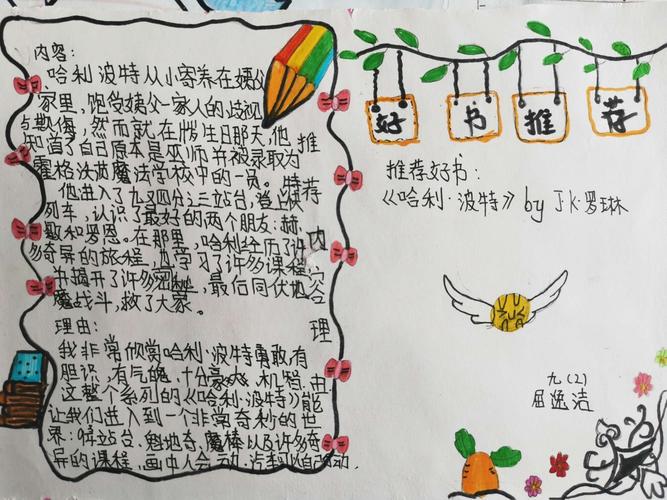 内容:
哈利波特从小寄养在姨父
家里,饱受姨父一家人的歧视
与欺侮,然而就在11岁生日那天,他
知道了自己原本是巫师并被录取为
霍格沃茨魔法学校中的一员。
他进入了九又四分之三站台,登上快
列车,认识了最好的两个朋友:赫
敏和罗恩。在那里,哈利经历了许
多奇异的旅程,也学习了许多课程,
并揭开了许多密秘,最后同伏地
魔战斗,救了大家。
理由:
我非常欣赏哈利·波特勇敢有
胆识,有气魄,十分豪爽,机智,由
这整个系列的《哈利·波特》能
让我们进入到一个非常奇秒的世
界:站台,魁地奇,魔棒以及许多奇
异的课程,画中人会动,汽车可以自动,
推
荐
内
容
理
好书推荐
推荐好书:
《哈利·波特》by J.K·罗琳
九(2)
屈逸洁